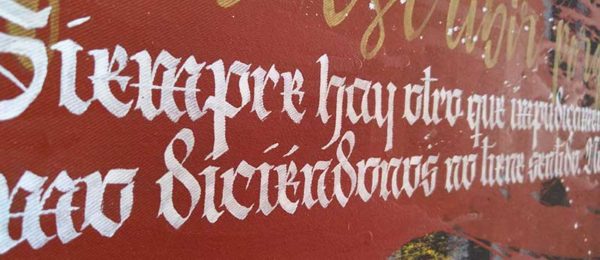 Siempre hay otro que impúdicamen
mo diciéndonos no tiene sentido. N